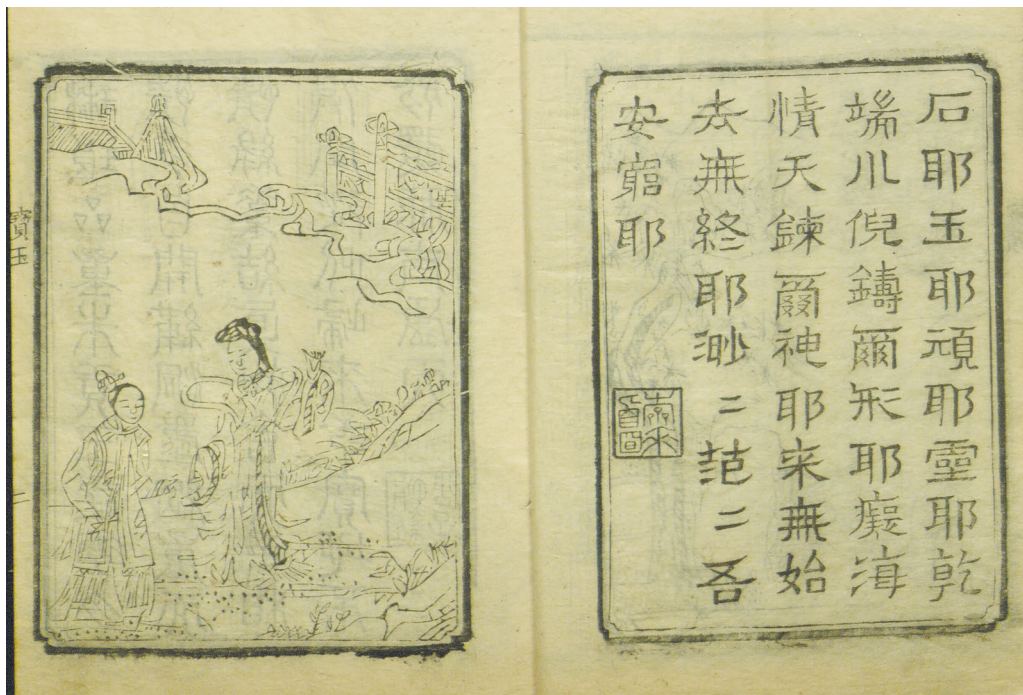 石耶玉耶頑耶靈耶乾
端小倪鑄爾形耶癡海
情天鍊爾神耶來無始
去無終耶渺〻茫〻吾
安窮耶
寶玉